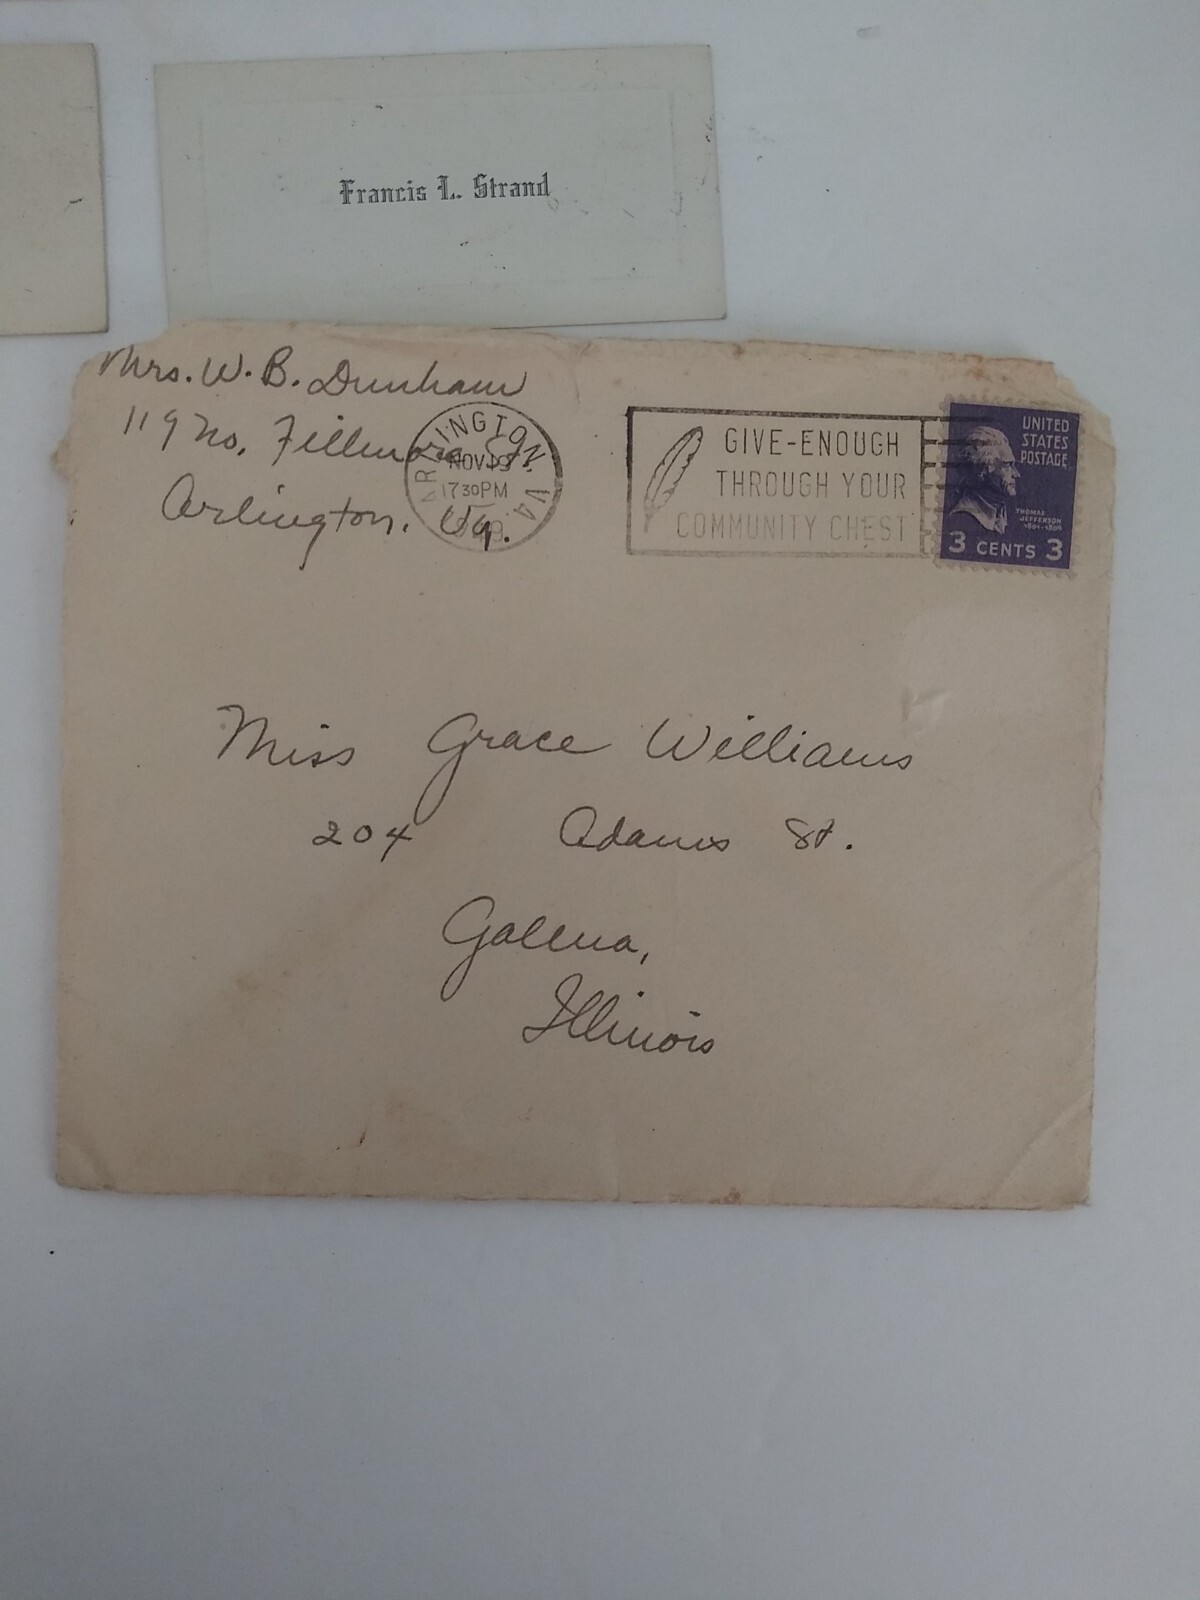 Francis L. Strand
Mrs. W. B. Dunham
119 No. Fillmore
Arlington, Va.
ARLINGTON, VA.
NOV 19
730 PM
GIVE-ENOUGH
THROUGH YOUR
COMMUNITY CHEST
UNITED
STATES
POSTAGE
THOMAS
JEFFERSON
1801-1809
3 CENTS 3
Miss Grace Williams
204 Adams St.
Galena,
Illinois